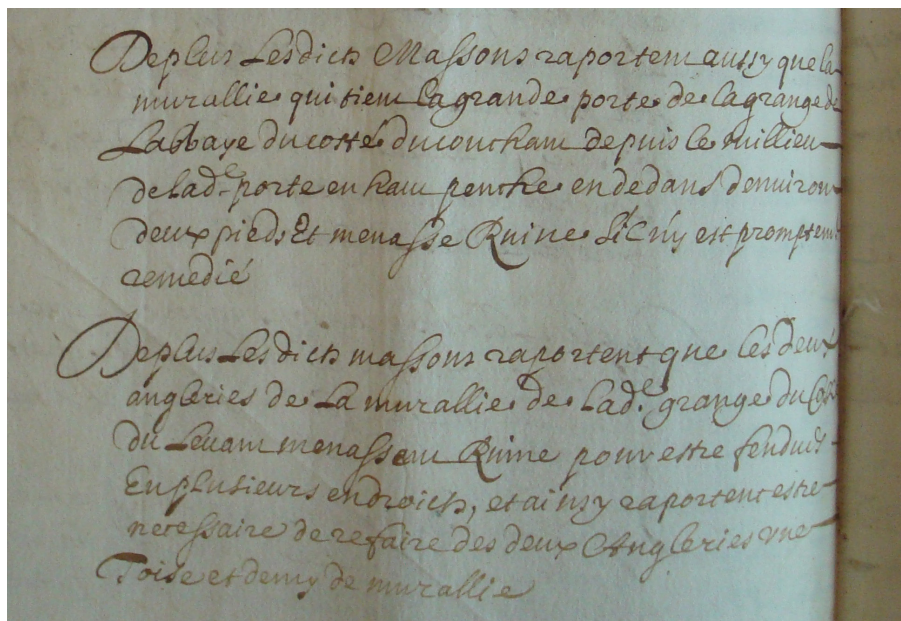 Deplus Lesdicts Massons raportent aussy que la
murallie qui tient la grande porte de la grange de
Labbaye du costé du couchant depuis le millieu
de lad.e porte en haut penche en dedans denuiron
deux pieds Et menasse Ruine S'il n'y est promptemt
remedié
Deplus Lesdicts massons raportent que les deux
angleries de La murallie de Lad.e grange du Costé
du Leuant menassent Ruine pour estre fendues
En plusieurs endroicts, et ainsy raportent estre
necessaire de refaire des deux Angleries vne
Toise et demy de murallie